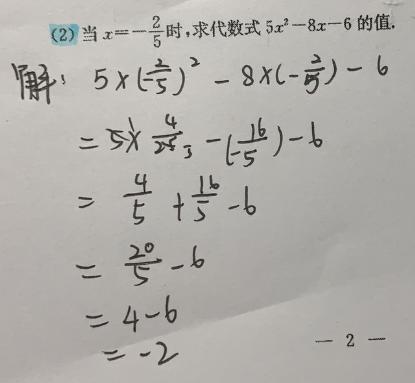 (2)当 x=-2/5 时,求代数式 5x²-8x-6 的值.
解: 5×(-2/5)² - 8×(-2/5) - 6
= 5×4/25 - (-16/5) - 6
= 4/5 + 16/5 - 6
= 20/5 - 6
= 4 - 6
= -2
— 2 —